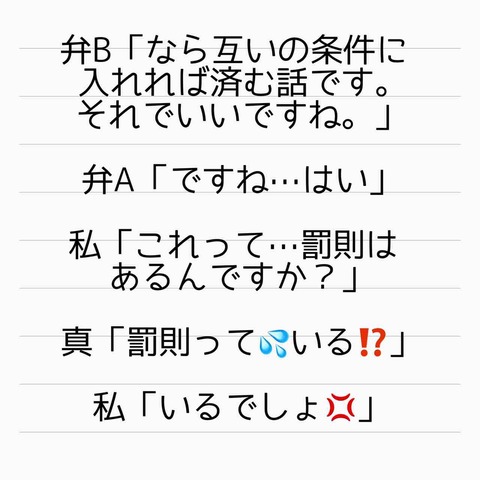 弁B「なら互いの条件に
入れれば済む話です。
それでいいですね。」
弁A「ですね…はい」
私「これって…罰則は
あるんですか？」
真「罰則って💦いる⁉️」
私「いるでしょ💢」